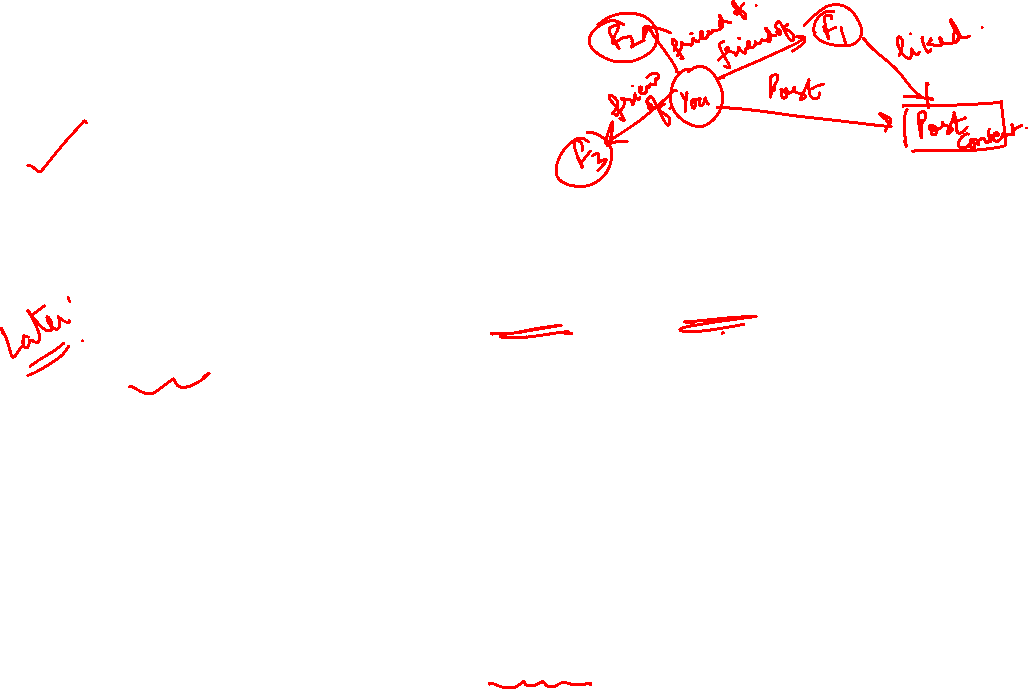 F2
friend of.
friend of
F1
liked.
friend
of
You
Post
Post
Content.
F3
Later: